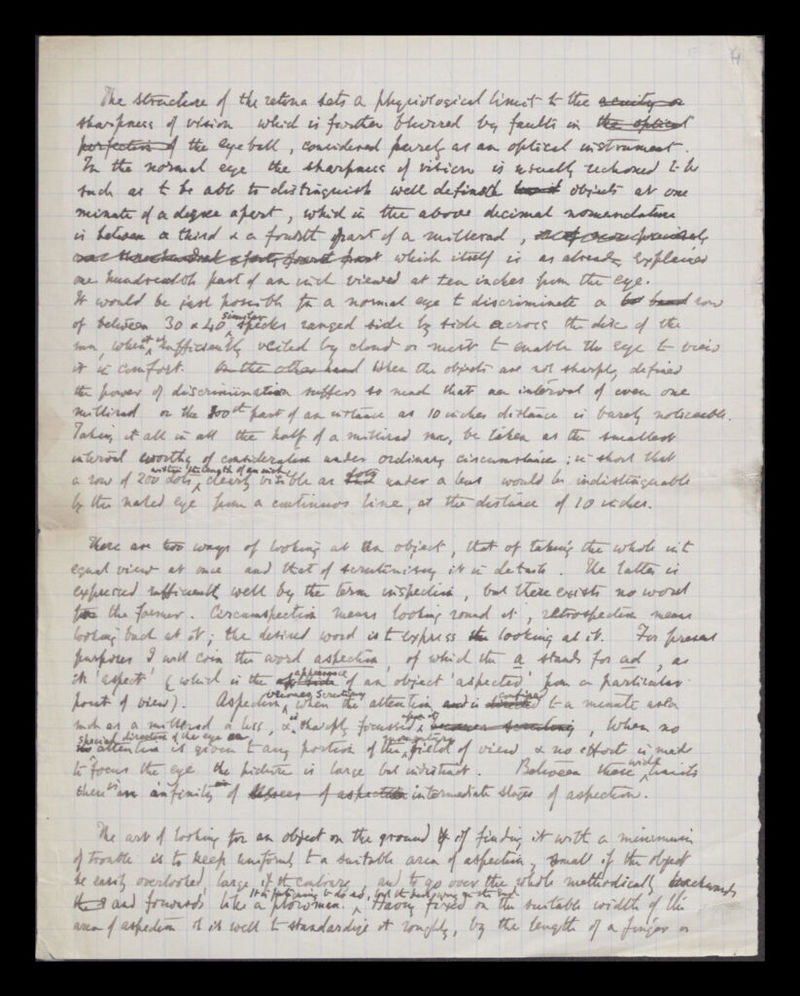 4
The structure of the retina sets a physiological limit to the acuity or
sharpness of vision which is further blurred by faults in the optical
perfection of the eyeball, considered purely as an optical instrument.
In the normal eye the sharpness of vision is usually reckoned to be
such as to be able to distinguish well defined objects at one
minute of a degree apart, which in the above decimal nomenclature
is between a third & a fourth part of a millerad, or more precisely
which itself is as already explained
one hundredth part of an inch viewed at ten inches from the eye.
It would be just possible for a normal eye to discriminate a row
of between 30 & 40 similar specks ranged side by side across the disc of the
sun, when it is sufficiently veiled by cloud or mist to enable the eye to view
it in comfort. On the other hand When the objects are not sharply defined
the power of discrimination suffers so much that an interval of even one
millirad or the 100th part of an instance at 10 inches distance is barely noticeable.
Taking it all in all the half of a millirad may be taken as the smallest
interval worthy of consideration under ordinary circumstance; in short that
a row of 200 dots within the length of an inch clearly visible as dots under a lens would be indistinguishable
by the naked eye from a continuous line, at the distance of 10 inches.
There are two ways of looking at an object, that of taking the whole in at
equal view at once and that of scrutinising it in details. The latter is
expressed sufficiently well by the term inspection, but there exists no word
for the former. Circumspection means looking round it, retrospection means
looking back at it; the desired word is to express the looking at it. For present
purposes I will coin the word aspection, of which the a stands for ad, as
in 'aspect' (which is the appearance of an object 'aspected' from a particular
point of view). Aspection becomes scrutiny when the attention is directed confined to a minute area
such as a millerad or less, & is sharply focussed upon it, When no
special direction of the eye or attention is given to any portion of the field of view & no effort is made
to focus the eye the picture is large but indistinct. Between these wide limits
there is an infinity of degrees of aspection intermediate stages of aspection.
The art of looking for an object on the ground & of finding it with a minimum
of trouble is to keep uniformly to a suitable area of aspection, small if the object
be easily overlooked, large if the contrary, and to go over the whole methodically backwards
and forwards like a plowman. Having fixed on the suitable width of the
area of aspection it is well to standardize it roughly, by the length of a finger or